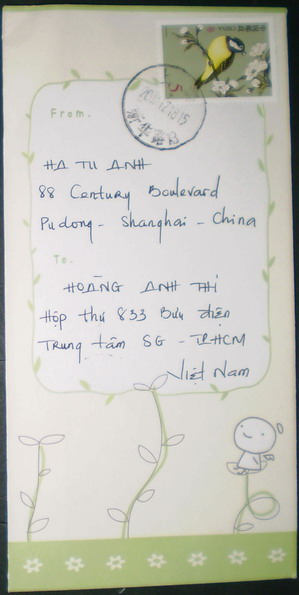 中国邮政 CHINA
5
From.
HA TU ANH
88 Century Boulevard
Pudong - Shanghai - China
To.
HOÀNG ANH THI
Hộp thư 833 Bưu điện
Trung tâm SG - TPHCM
Việt Nam